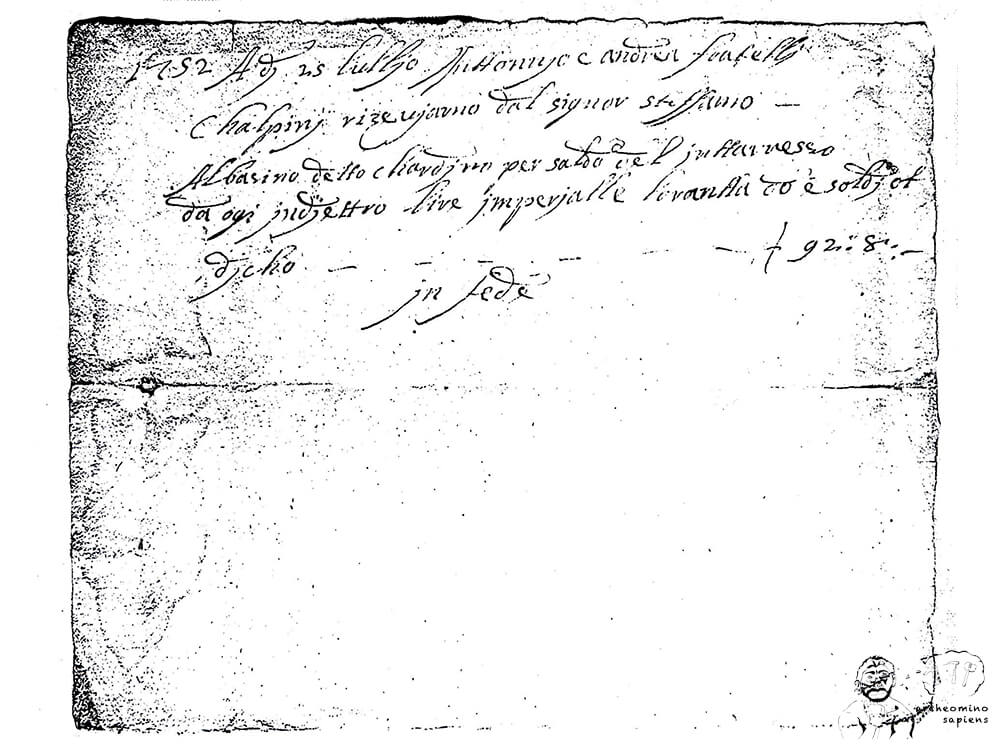 1752 Adj 25 lulljo Anttonnjo e andrea fratellj
Chalpinj rizevjavno dal signor steffano —
Albasino detto chardjno per saldo del jnttaresso
da ogi jndjettro live jmperjalle e soldj ot
djcho — — — — — £ 92:: 8:: —
jn fede
archeomino
sapiens